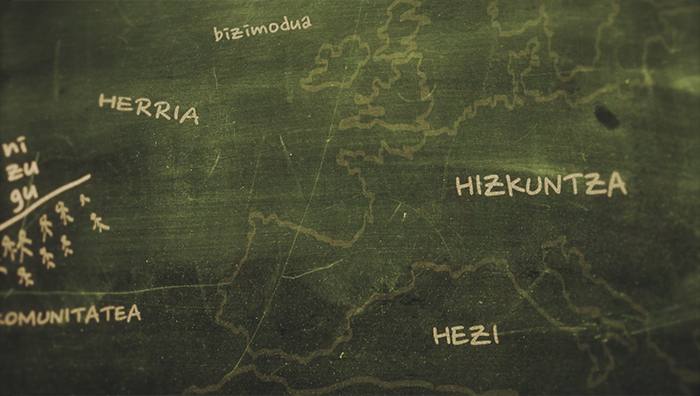 bizimodua
HERRIA
ni
zu
gu
HIZKUNTZA
KOMUNITATEA
HEZI